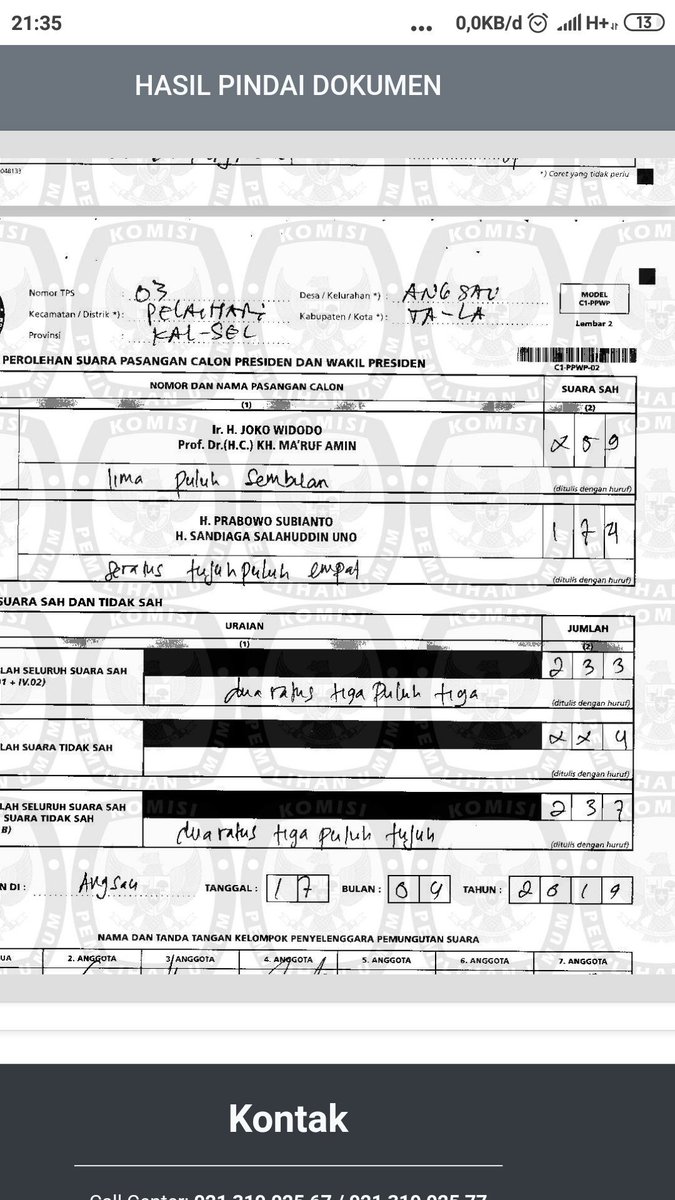 21:35 ... 0,0KB/d H+ 13
HASIL PINDAI DOKUMEN
*) Coret yang tidak perlu
Nomor TPS : 03 Desa / Kelurahan *) : ANGSAU
Kecamatan / Distrik *) : PELAIHARI Kabupaten / Kota *) : TA-LA
Provinsi : KAL-SEL
MODEL
C1-PPWP
Lembar 2
PEROLEHAN SUARA PASANGAN CALON PRESIDEN DAN WAKIL PRESIDEN
C1-PPWP-02
NOMOR DAN NAMA PASANGAN CALON SUARA SAH
(1) (2)
Ir. H. JOKO WIDODO
Prof. Dr.(H.C.) KH. MA'RUF AMIN
X 5 9
lima puluh sembilan (ditulis dengan huruf)
H. PRABOWO SUBIANTO
H. SANDIAGA SALAHUDDIN UNO
1 7 4
seratus tujuh puluh empat (ditulis dengan huruf)
SUARA SAH DAN TIDAK SAH
URAIAN JUMLAH
(1) (2)
LAH SELURUH SUARA SAH 2 3 3
1 + IV.02)
dua ratus tiga puluh tiga (ditulis dengan huruf)
LAH SUARA TIDAK SAH X X 4
(ditulis dengan huruf)
LAH SELURUH SUARA SAH 2 3 7
SUARA TIDAK SAH
B)
dua ratus tiga puluh tujuh (ditulis dengan huruf)
N DI : Angsau TANGGAL : 17 BULAN : 04 TAHUN : 2019
NAMA DAN TANDA TANGAN KELOMPOK PENYELENGGARA PEMUNGUTAN SUARA
UA 2. ANGGOTA 3. ANGGOTA 4. ANGGOTA 5. ANGGOTA 6. ANGGOTA 7. ANGGOTA
Kontak
Call Center: 021 319 025 67 / 021 319 025 77